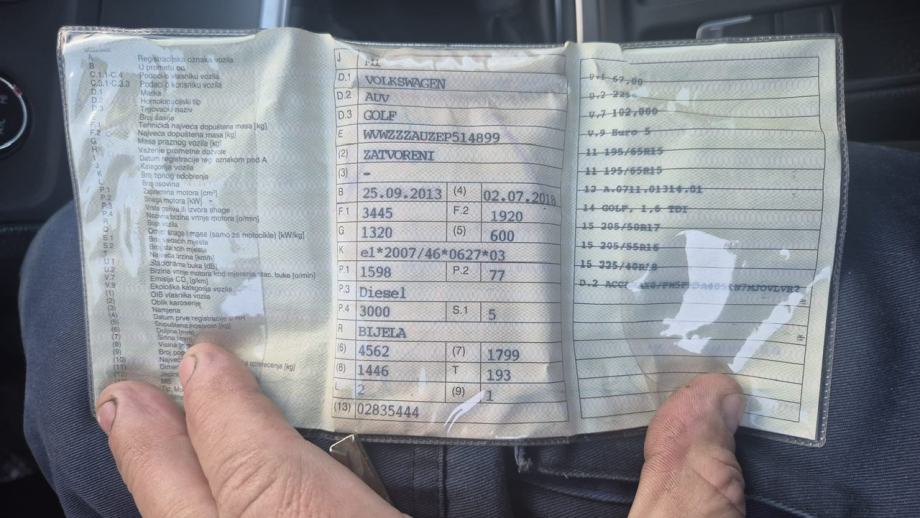 A Registracijska oznaka vozila
B U prometu od
C.1.1-C.4 Podaci o vlasniku vozila
C.3.1-C.3.3 Podaci o korisniku vozila
D.1 Marka
D.2 Homologacijski tip
D.3 Trgovački naziv
Broj šasije
Tehnička najveća dopuštena masa [kg]
Najveća dopuštena masa [kg]
Masa praznog vozila [kg]
Važenje prometne dozvole
Datum registracije reg. oznakom pod A
Kategorija vozila
Broj tipnog odobrenja
Broj osovina
motora [cm³]
Snaga motora [kW]
Vrsta goriva ili izvora snage
Nazivna brzina vrtnje motora [o/min]
Boja vozila
Omjer snage i mase (samo za motocikle) [kW/kg]
Broj sjedećih mjesta
Broj stajaćih mjesta
Najveća brzina [km/h]
buka [dB]
Emisija CO₂ [g/km]
Ekološka kategorija vozila
OIB vlasnika vozila
Oblik karoserije
Namjena
Datum prve registracije u RH
Dopuštena nosivost [kg]
Duljina [mm]
Širina [mm]
Visina
J M1
D.1 VOLKSWAGEN
D.2 AUV
D.3 GOLF
E WVWZZZAUZEP514899
(2) ZATVORENI
(3) -
B 25.09.2013 (4) 02.07.2018
F.1 3445 F.2 1920
G 1320 (5) 600
K e1*2007/46*0627*03
P.1 1598 P.2 77
P.3 Diesel
P.4 3000 S.1 5
R BIJELA
(6) 4562 (7) 1799
(8) 1446 T 193
L 2 (9) 1
(13) 02835444
U.1 67,00
V.7 102,000
V.9 Euro 5
11 195/65R15
11 195/65R15
12 A.0711.01314.01
14 GOLF, 1,6 TDI
15 205/50R17
15 205/55R16
15 225/40R18